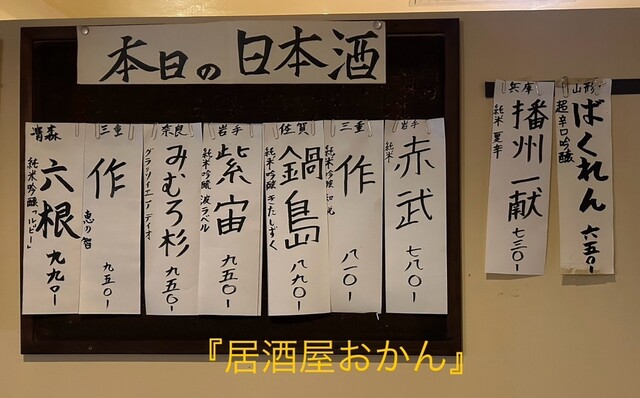 本日の日本酒
兵庫
播州一献
純米 夏辛
七三〇-
山形
ばくれん
超辛口吟醸
六五〇-
岩手
赤武
純米
七八〇-
三重
作
純米吟醸 和光
八一〇-
佐賀
鍋島
純米吟醸 きたしずく
八九〇-
岩手
紫宙
純米吟醸 波ラベル
九五〇-
奈良
みむろ杉
グラツィエ ディオ
九五〇-
三重
作
恵の智
九五〇-
青森
六根
純米吟醸「ルビー」
九九〇-
『居酒屋おかん』